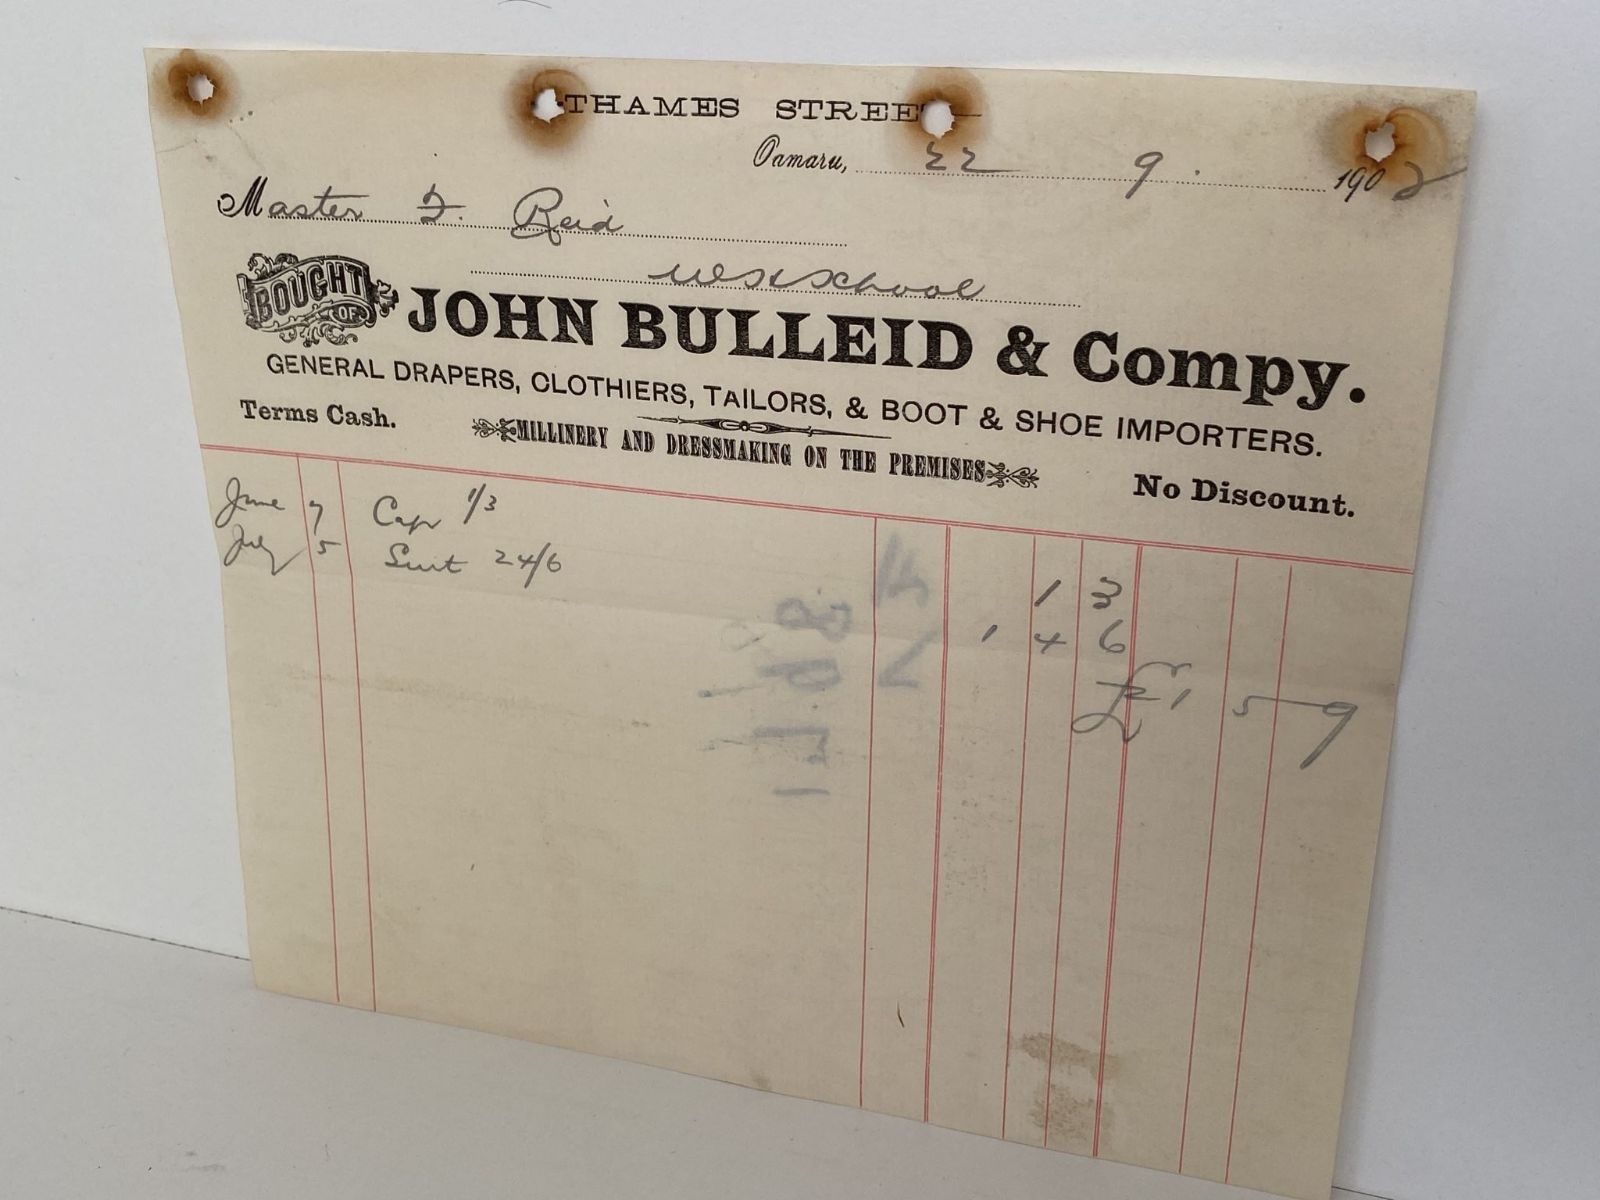 THAMES STREE
Oamaru, 22 9. 1902
Master F. Reid
BOUGHT OF
JOHN BULLEID & Compy.
GENERAL DRAPERS, CLOTHIERS, TAILORS, & BOOT & SHOE IMPORTERS.
Terms Cash.
MILLINERY AND DRESSMAKING ON THE PREMISES
No Discount.
June 7 Cap 1/3 1 3
July 5 Suit 24/6 1 4 6
£1 5 9